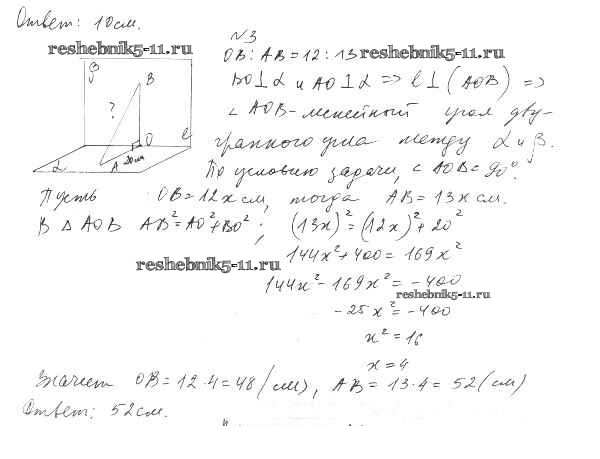 Ответ: 10 см.
№3
reshebnik5-11.ru
OB : AB = 12 : 13 reshebnik5-11.ru
β B ? O ℓ α A 20 см
BO ⊥ α и AO ⊥ ℓ => ℓ ⊥ (AOB) =>
∠ AOB - линейный угол дву-
гранного угла между α и β.
По условию задачи, ∠ AOB = 90°.
Пусть OB = 12x см, тогда AB = 13x см.
В Δ AOB AB² = AO² + BO²; (13x)² = (12x)² + 20²
144x² + 400 = 169x²
reshebnik5-11.ru
144x² - 169x² = -400
reshebnik5-11.ru
-25x² = -400
x² = 16
x = 4
Значит OB = 12·4 = 48 (см), AB = 13·4 = 52 (см)
Ответ: 52 см.